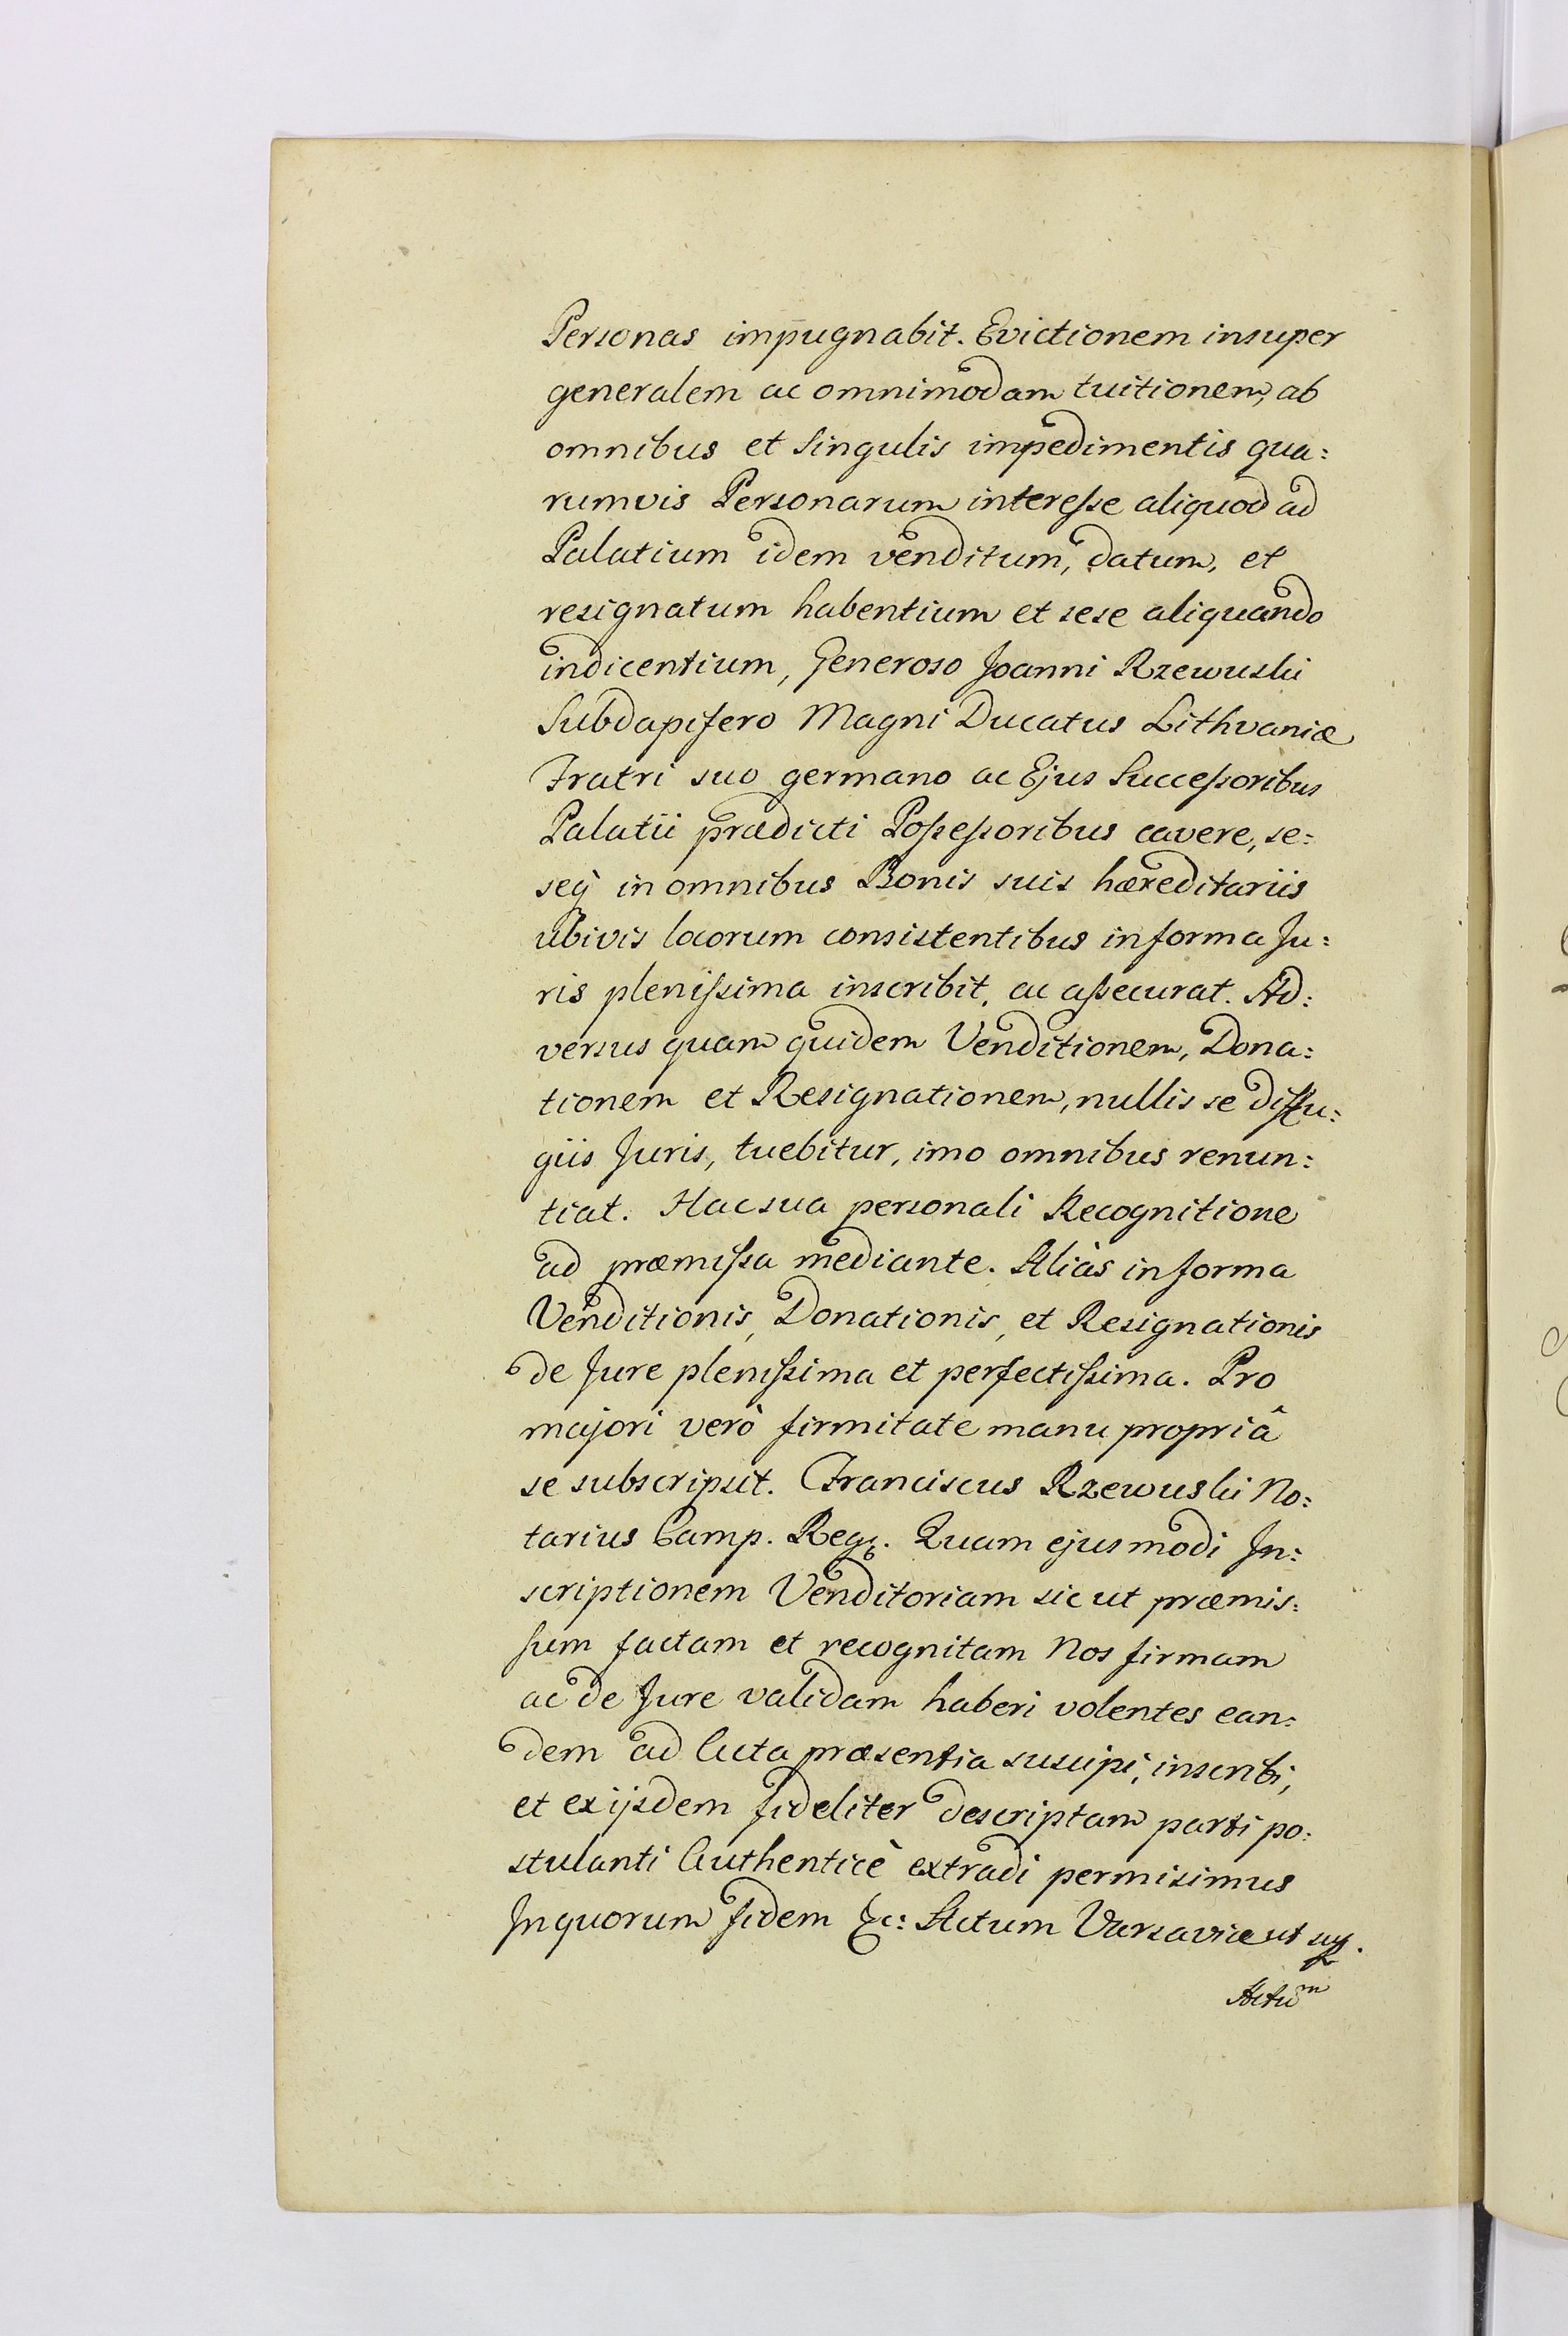 Personas impugnabit. Evictionem insuper
generalem ac omnimodam tuitionem, ab
omnibus et Singulis impedimentis qua:
rumvis Personarum interesse aliquod ad
Palatium idem venditum, datum, et
resignatum habentium et sese aliquando
indicentium, Generoso Joanni Rzewuski
Subdapifero Magni Ducatus Lithvaniæ
Fratri suo germano ac Ejus Successoribus
Palatii prædicti Possessoribus cavere, se:
seq́ in omnibus Bonis suis hæreditariis
ubivis locorum consistentibus in forma Ju:
ris plenissima inscribit, ac assecurat. Ad:
versus quam quidem Venditionem, Dona:
tionem et Resignationem, nullis se diffu:
giis Juris, tuebitur, imo omnibus renun:
tiat. Hac sua personali Recognitione
ad præmissa mediante. Aliàs in forma
Venditionis, Donationis, et Resignationis
de Jure plenissima et perfectissima. Pro
majori verò firmitate manu propriâ
se subscripsit. Franciscus Rzewuski No:
tarius Camp. Reg. Quam ejusmodi In:
scriptionem Venditoriam sic ut præmis:
sum factam et recognitam Nos firmam
ac de Jure validam haberi volentes ean:
dem ad Acta præsentia suscipi, inscribi,
et ex ijsdem fideliter descriptam parti po:
stulanti Authenticè extradi permisimus
In quorum fidem &c: Actum Varsaviæ ut sup.
Actũm